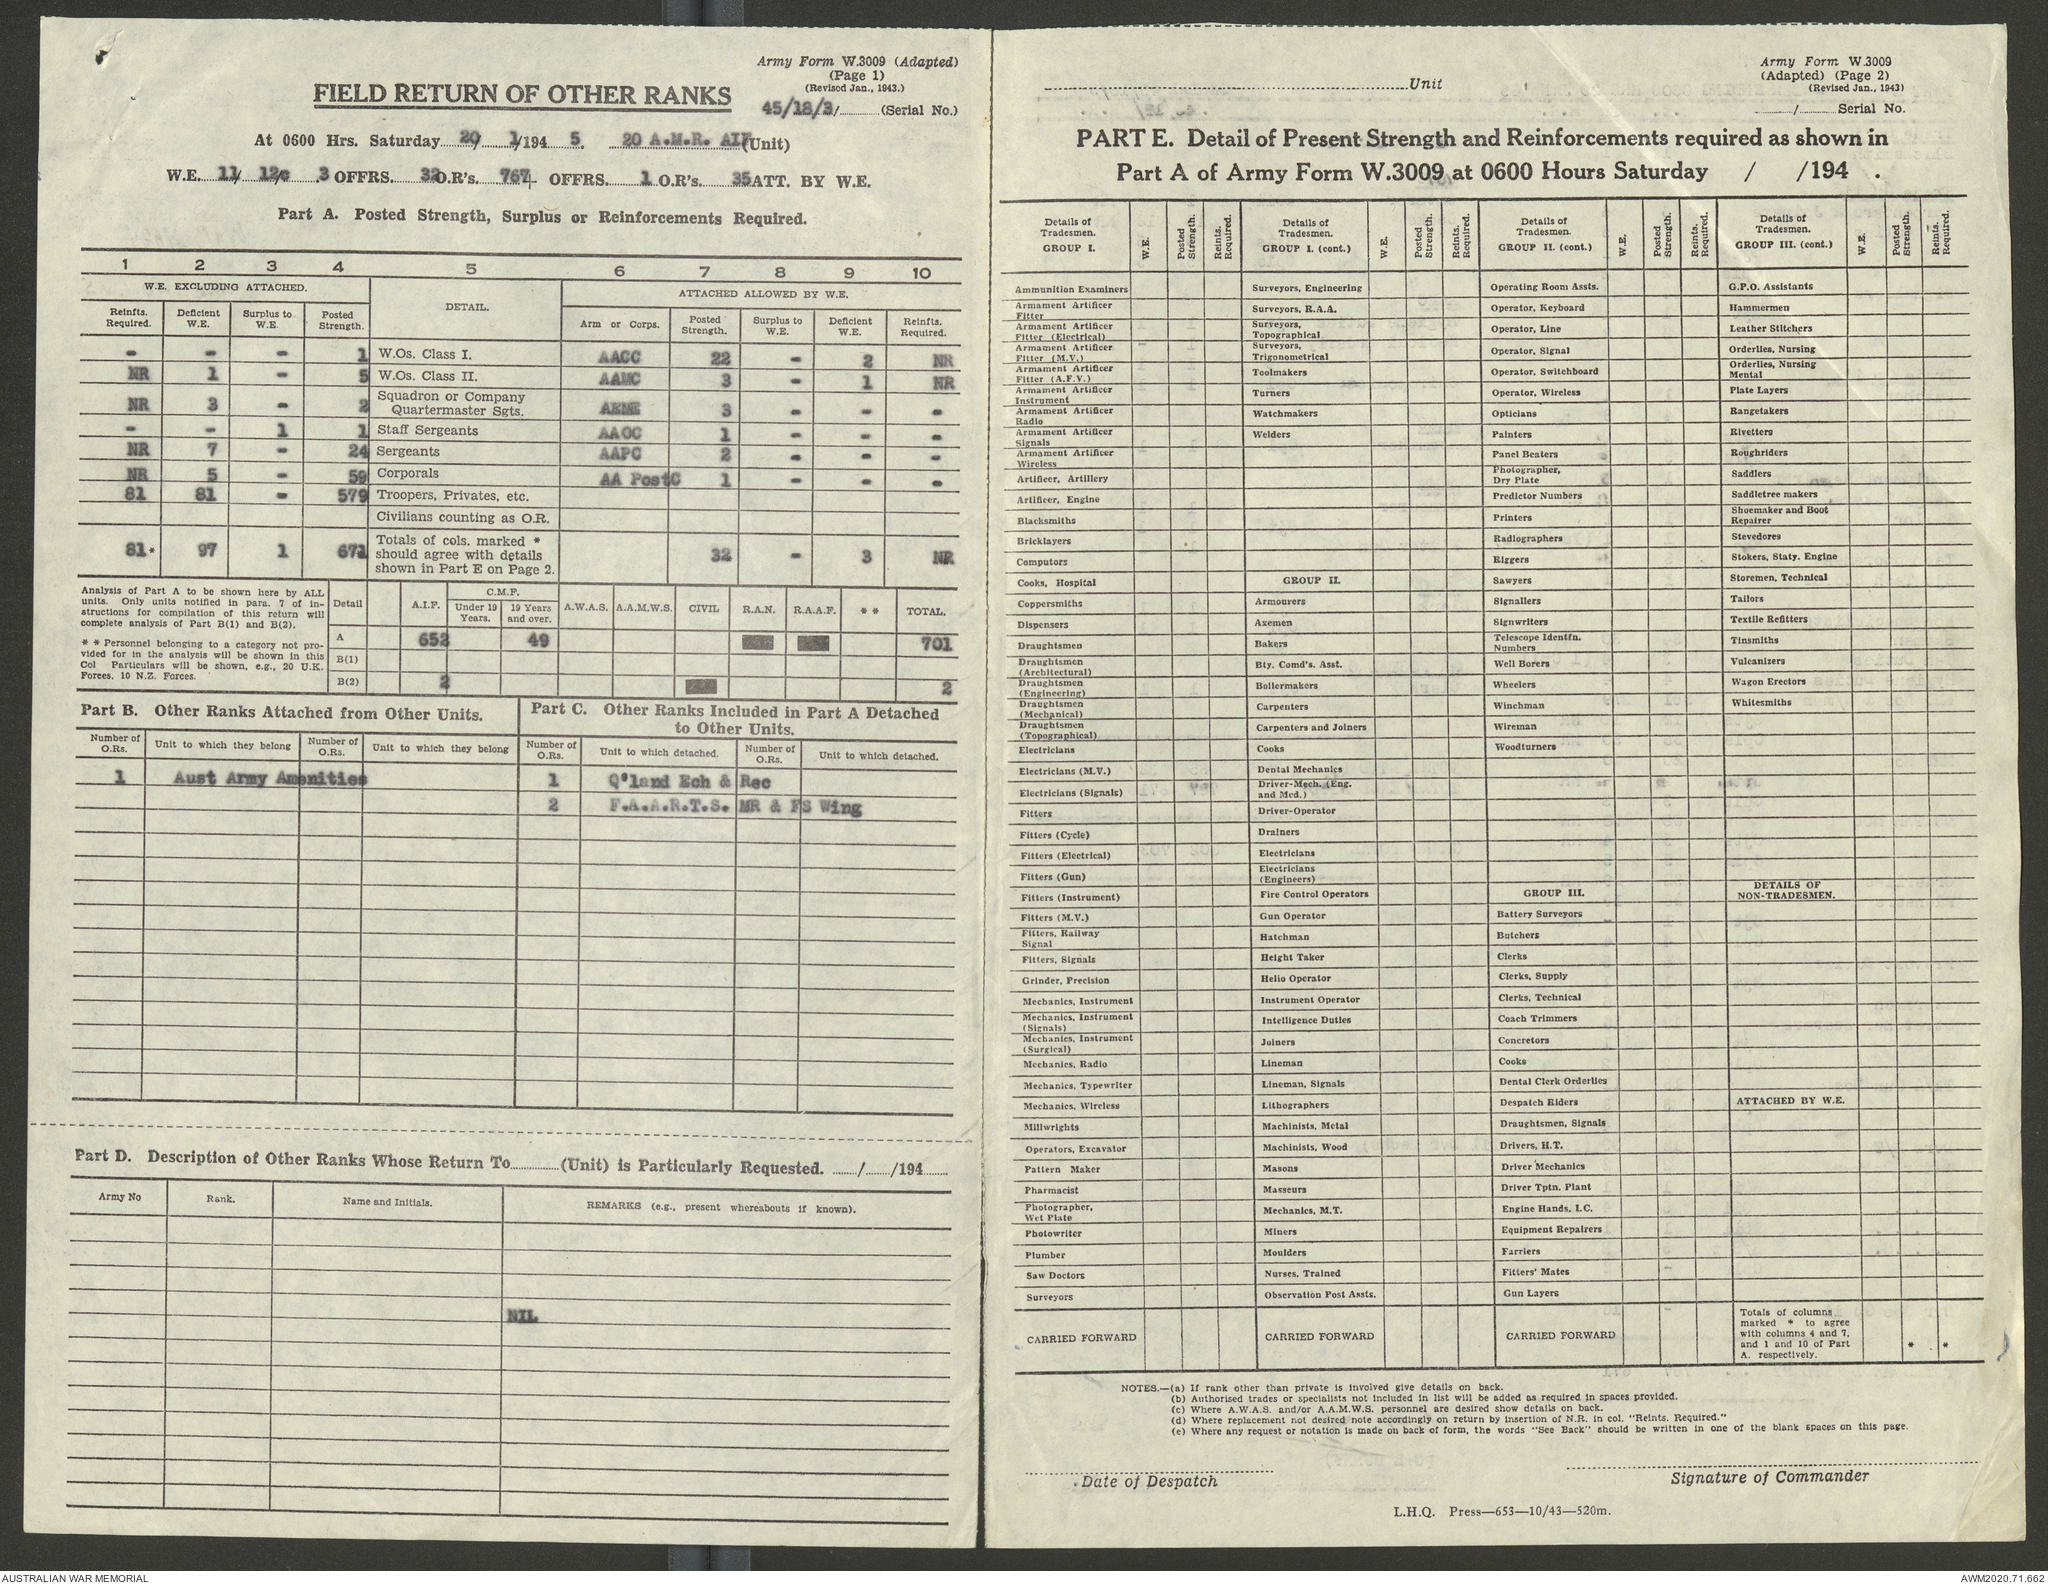 Army Form W.3009 (Adapted)
(Page 1)
(Revised Jan., 1943.)
FIELD RETURN OF OTHER RANKS
45/18/3/ (Serial No.)
At 0600 Hrs. Saturday 20/ 1/194 5. 20 A.M.R. AIF (Unit)
W.E. 11/ 12/c .3 OFFRS. 32 O.R's. 767+ OFFRS. 1 O.R's. 35 ATT. BY W.E.
Part A. Posted Strength, Surplus or Reinforcements Required.
1 2 3 4 5 6 7 8 9 10
W.E. EXCLUDING ATTACHED. DETAIL. ATTACHED ALLOWED BY W.E.
Reinfts. Required. Deficient W.E. Surplus to W.E. Posted Strength. Arm or Corps. Posted Strength. Surplus to W.E. Deficient W.E. Reinfts. Required.
- - - 1 W.Os. Class I. AACC 22 - 2 NR
NR 1 - 5 W.Os. Class II. AAMC 3 - 1 NR
NR 3 - 2 Squadron or Company Quartermaster Sgts. AEME 3 - - -
- - 1 1 Staff Sergeants AAOC 1 - - -
NR 7 - 24 Sergeants AAPC 2 - - -
NR 5 - 59 Corporals AA PostC 1 - - -
81 81 - 579 Troopers, Privates, etc.
Civilians counting as O.R.
81* 97 1 671 Totals of cols. marked * should agree with details shown in Part E on Page 2. 32 - 3 NR
Analysis of Part A to be shown here by ALL
units. Only units notified in para. 7 of in-
structions for compilation of this return will
complete analysis of Part B(1) and B(2).
* * Personnel belonging to a category not pro-
vided for in the analysis will be shown in this
Col Particulars will be shown, e.g., 20 U.K.
Forces, 10 N.Z. Forces.
Detail A.I.F. C.M.F. Under 19 Years. 19 Years and over. A.W.A.S. A.A.M.W.S. CIVIL R.A.N. R.A.A.F. * * TOTAL.
A 652 49 701
B(1)
B(2) 2 2
Part B. Other Ranks Attached from Other Units.
Number of O.Rs. Unit to which they belong Number of O.Rs. Unit to which they belong
1 Aust Army Amenities
Part C. Other Ranks Included in Part A Detached
to Other Units.
Number of O.Rs. Unit to which detached. Number of O.Rs. Unit to which detached.
1 Q'land Ech & Rec
2 F.A.A.R.T.S. MR & FS Wing
Part D. Description of Other Ranks Whose Return To (Unit) is Particularly Requested. / /194
Army No Rank. Name and Initials. REMARKS (e.g., present whereabouts if known).
NIL
Unit
Army Form W.3009
(Adapted) (Page 2)
(Revised Jan., 1943)
/ Serial No.
PART E. Detail of Present Strength and Reinforcements required as shown in
Part A of Army Form W.3009 at 0600 Hours Saturday / /194 .
Details of Tradesmen. GROUP I. W.E. Posted Strength. Reints. Required.
Ammunition Examiners
Armament Artificer Fitter
Armament Artificer Fitter (Electrical)
Armament Artificer Fitter (M.V.)
Armament Artificer Fitter (A.F.V.)
Armament Artificer Instrument
Armament Artificer Radio
Armament Artificer Signals
Armament Artificer Wireless
Artificer, Artillery
Artificer, Engine
Blacksmiths
Bricklayers
Computors
Cooks, Hospital
Coppersmiths
Dispensers
Draughtsmen
Draughtsmen (Architectural)
Draughtsmen (Engineering)
Draughtsmen (Mechanical)
Draughtsmen (Topographical)
Electricians
Electricians (M.V.)
Electricians (Signals)
Fitters
Fitters (Cycle)
Fitters (Electrical)
Fitters (Gun)
Fitters (Instrument)
Fitters (M.V.)
Fitters, Railway Signal
Fitters, Signals
Grinder, Precision
Mechanics, Instrument
Mechanics, Instrument (Signals)
Mechanics, Instrument (Surgical)
Mechanics, Radio
Mechanics, Typewriter
Mechanics, Wireless
Millwrights
Operators, Excavator
Pattern Maker
Pharmacist
Photographer, Wet Plate
Photowriter
Plumber
Saw Doctors
Surveyors
CARRIED FORWARD
Details of Tradesmen. GROUP I. (cont.) W.E. Posted Strength. Reints. Required.
Surveyors, Engineering
Surveyors, R.A.A.
Surveyors, Topographical
Surveyors, Trigonometrical
Toolmakers
Turners
Watchmakers
Welders
GROUP II.
Armourers
Axemen
Bakers
Bty. Comd's. Asst.
Boilermakers
Carpenters
Carpenters and Joiners
Cooks
Dental Mechanics
Driver-Mech. (Eng. and Med.)
Driver-Operator
Drainers
Electricians
Electricians (Engineers)
Fire Control Operators
Gun Operator
Hatchman
Height Taker
Helio Operator
Instrument Operator
Intelligence Duties
Joiners
Lineman
Lineman, Signals
Lithographers
Machinists, Metal
Machinists, Wood
Masons
Masseurs
Mechanics, M.T.
Miners
Moulders
Nurses, Trained
Observation Post Assts.
CARRIED FORWARD
Details of Tradesmen. GROUP II. (cont.) W.E. Posted Strength. Reints. Required.
Operating Room Assts.
Operator, Keyboard
Operator, Line
Operator, Signal
Operator, Switchboard
Operator, Wireless
Opticians
Painters
Panel Beaters
Photographer, Dry Plate
Predictor Numbers
Printers
Radiographers
Riggers
Sawyers
Signallers
Signwriters
Telescope Identfn. Numbers
Well Borers
Wheelers
Winchman
Wireman
Woodturners
GROUP III.
Battery Surveyors
Butchers
Clerks
Clerks, Supply
Clerks, Technical
Coach Trimmers
Concretors
Cooks
Dental Clerk Orderlies
Despatch Riders
Draughtsmen, Signals
Drivers, H.T.
Driver Mechanics
Driver Tptn. Plant
Engine Hands, I.C.
Equipment Repairers
Farriers
Fitters' Mates
Gun Layers
CARRIED FORWARD
Details of Tradesmen. GROUP III. (cont.) W.E. Posted Strength. Reints. Required.
G.P.O. Assistants
Hammermen
Leather Stitchers
Orderlies, Nursing
Orderlies, Nursing Mental
Plate Layers
Rangetakers
Rivetters
Roughriders
Saddlers
Saddletree makers
Shoemaker and Boot Repairer
Stevedores
Stokers, Staty. Engine
Storemen, Technical
Tailors
Textile Refitters
Tinsmiths
Vulcanizers
Wagon Erectors
Whitesmiths
DETAILS OF
NON-TRADESMEN.
ATTACHED BY W.E.
Totals of columns
marked * to agree
with columns 4 and 7,
and 1 and 10 of Part
A. respectively.
* *
NOTES.—(a) If rank other than private is involved give details on back.
(b) Authorised trades or specialists not included in list will be added as required in spaces provided.
(c) Where A.W.A.S. and/or A.A.M.W.S. personnel are desired show details on back.
(d) Where replacement not desired note accordingly on return by insertion of N.R. in col. "Reints. Required."
(e) Where any request or notation is made on back of form, the words "See Back" should be written in one of the blank spaces on this page.
Date of Despatch
Signature of Commander
L.H.Q. Press—653—10/43—520m.
AUSTRALIAN WAR MEMORIAL
AWM2020.71.662